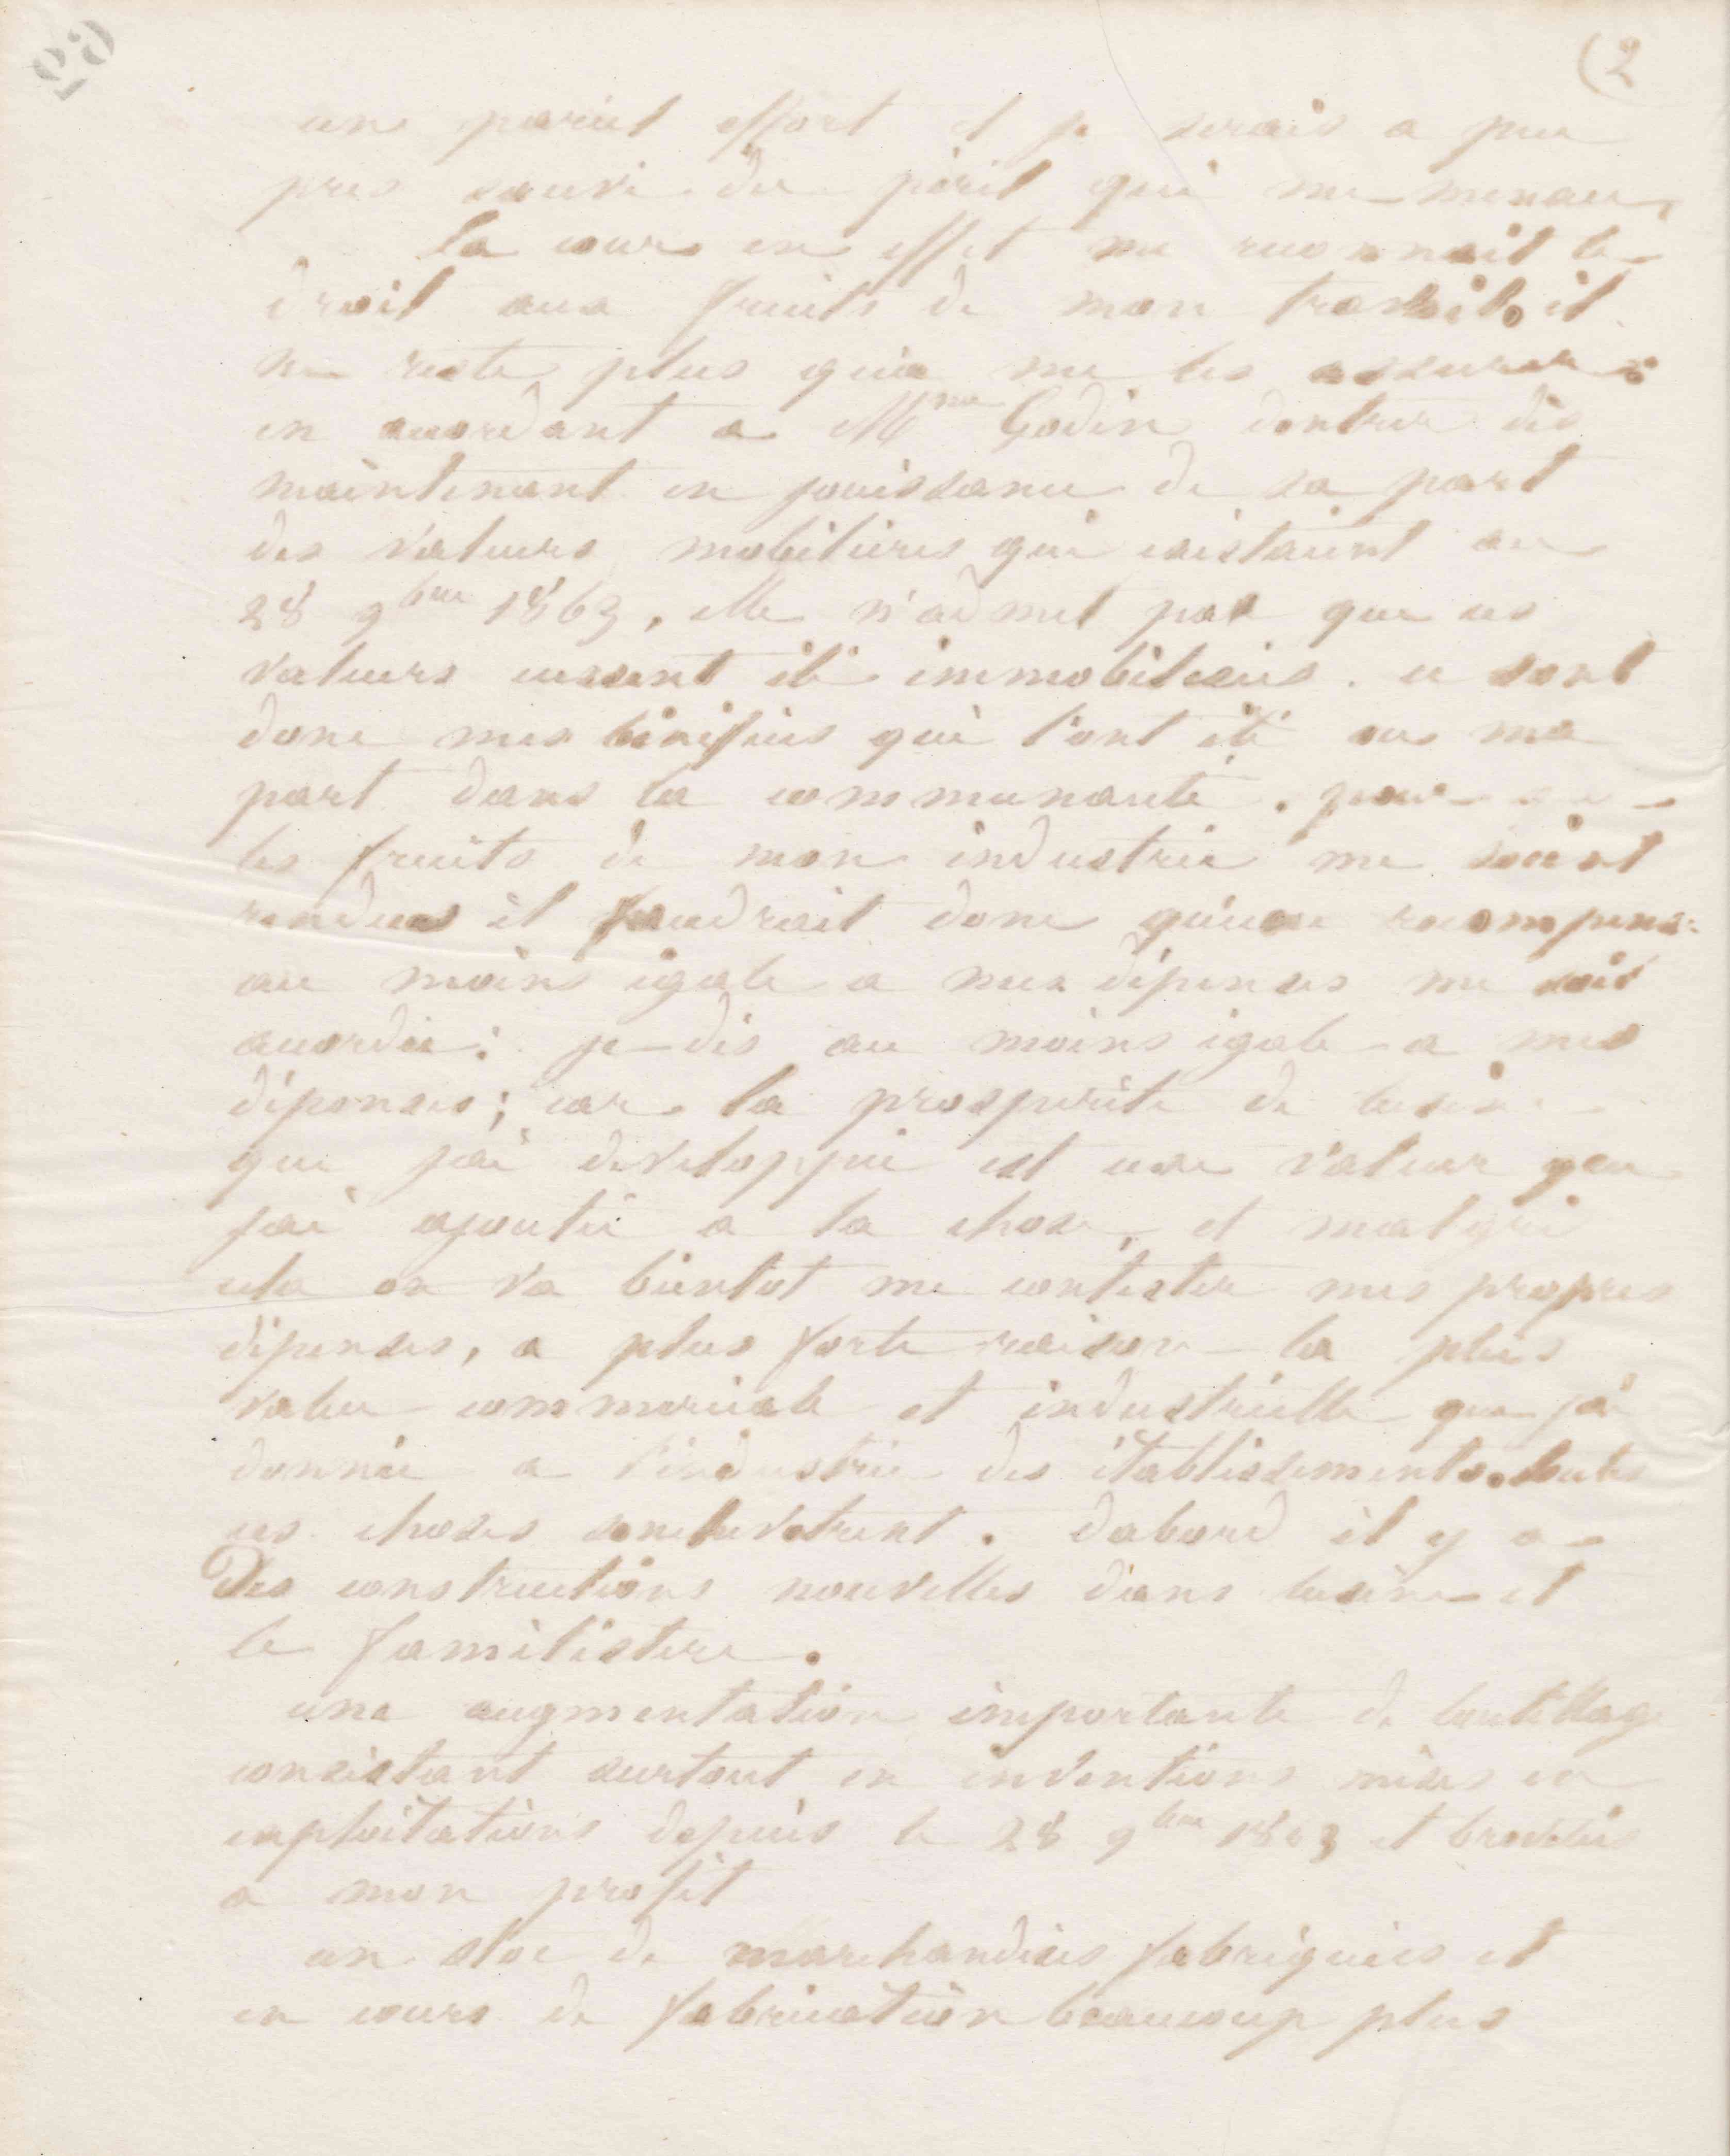 (2
un pareil effort et je serais a peu
pres sauvé du péril qui me menace,
la cour en effet me reconnait le
droit aux fruits de mon travail. il
ne reste plus qu'a me les assurer
en accordant a Mme Godin d'entrer dès
maintenant en jouissance de sa part
des valeurs mobilières qui existaient au
28 9bre 1863, elle n'admet pas que ces
valeurs eussent été immobilisées. ce sont
donc mes bénéfices qui l'ont été ou ma
part dans la communauté. pour
les fruits de mon industrie me soient
rendus il faudrait donc qu'une récompense
au moins égale a mes dépenses me soit
accordée: je dis au moins egale a mes
dépenses; car la prosperité de lusine
que jai developpée est une valeur que
jai ajoutée a la chose, et malgré
cela on va bientot me contester mes propres
dépenses, a plus forte raison la plus
value commerciale et industrielle que jai
donnée a l'industrie des établissements. toutes
ces choses dabord il y a
Des constructions nouvelles dans lusine et
le familistere.
une augmentation importante de loutillage
consistant surtout en inventions mises en
exploitations depuis le 28 9bre 1863 et brevetées
a mon profit
un stoc de marchandises fabriquées et
en cours de fabrication beaucoup plus